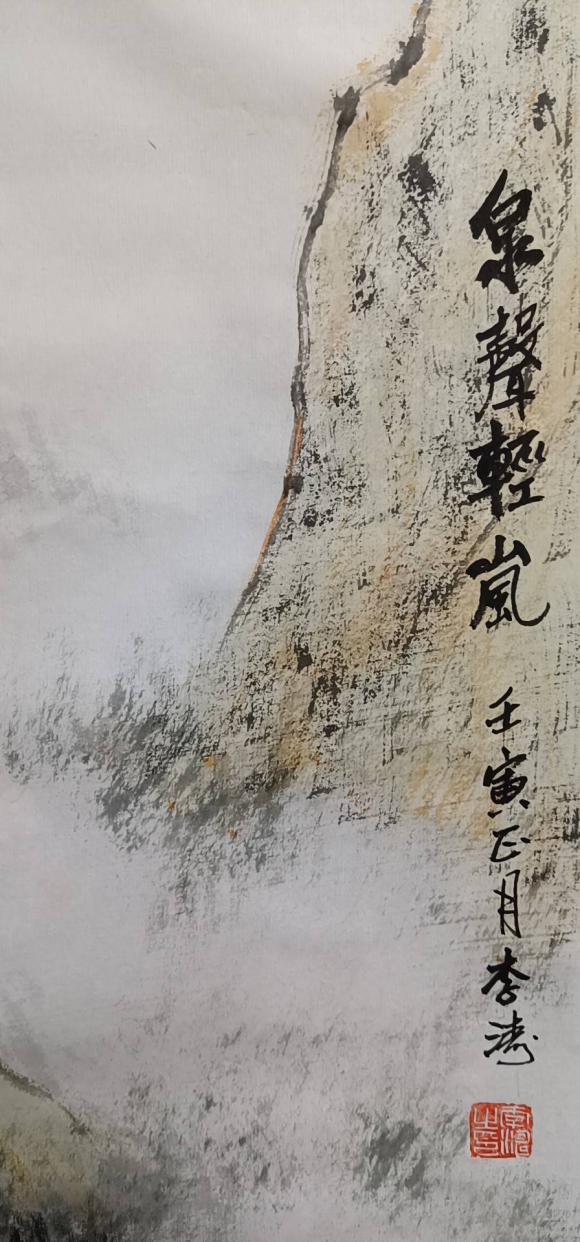 泉聲輕嵐
壬寅正月李濤